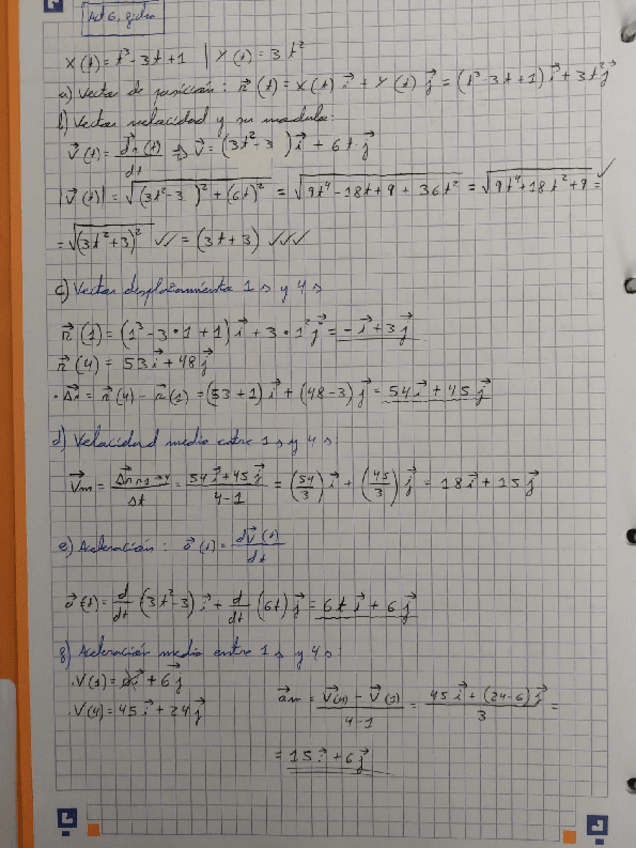 Act 6,
x(t) = t³ - 3t + 1 | y(t) = 3t²
a) Vector de posición: r⃗(t) = x(t) i⃗ + y(t) j⃗ = (t³ - 3t + 1) i⃗ + 3t² j⃗
b) Vector velocidad y su modulo:
v⃗(t) = dr⃗(t)/dt ⇒ v⃗ = (3t² - 3) i⃗ + 6t j⃗
|v⃗(t)| = √((3t² - 3)² + (6t)²) = √(9t⁴ - 18t + 9 + 36t²) = √(9t⁴ + 18t² + 9) = ✓
= √((3t² + 3)²) ✓✓ = (3t + 3) ✓✓✓
c) Vector desplazamiento 1 s y 4 s
r⃗(1) = (1³ - 3·1 + 1) i⃗ + 3·1² j⃗ = -i⃗ + 3j⃗
r⃗(4) = 53i⃗ + 48j⃗
· Δr⃗ = r⃗(4) - r⃗(1) = (53 + 1) i⃗ + (48 - 3) j⃗ = 54i⃗ + 45j⃗
d) Velocidad media entre 1 s y 4 s:
v⃗m = Δr⃗ 1→4/Δt = (54i⃗ + 45j⃗)/(4-1) = (54/3) i⃗ + (45/3) j⃗ = 18i⃗ + 15j⃗
e) Aceleración: a⃗(t) = dv⃗(t)/dt
a⃗(t) = d/dt (3t² - 3) i⃗ + d/dt (6t) j⃗ = 6t i⃗ + 6j⃗
g) Aceleración media entre 1 s y 4 s:
. V(1) = 0i⃗ + 6j⃗
. V(4) = 45i⃗ + 24j⃗
a⃗m = (v⃗(4) - v⃗(1))/(4-1) = (45i⃗ + (24-6)j⃗)/3 =
= 15i⃗ + 6j⃗